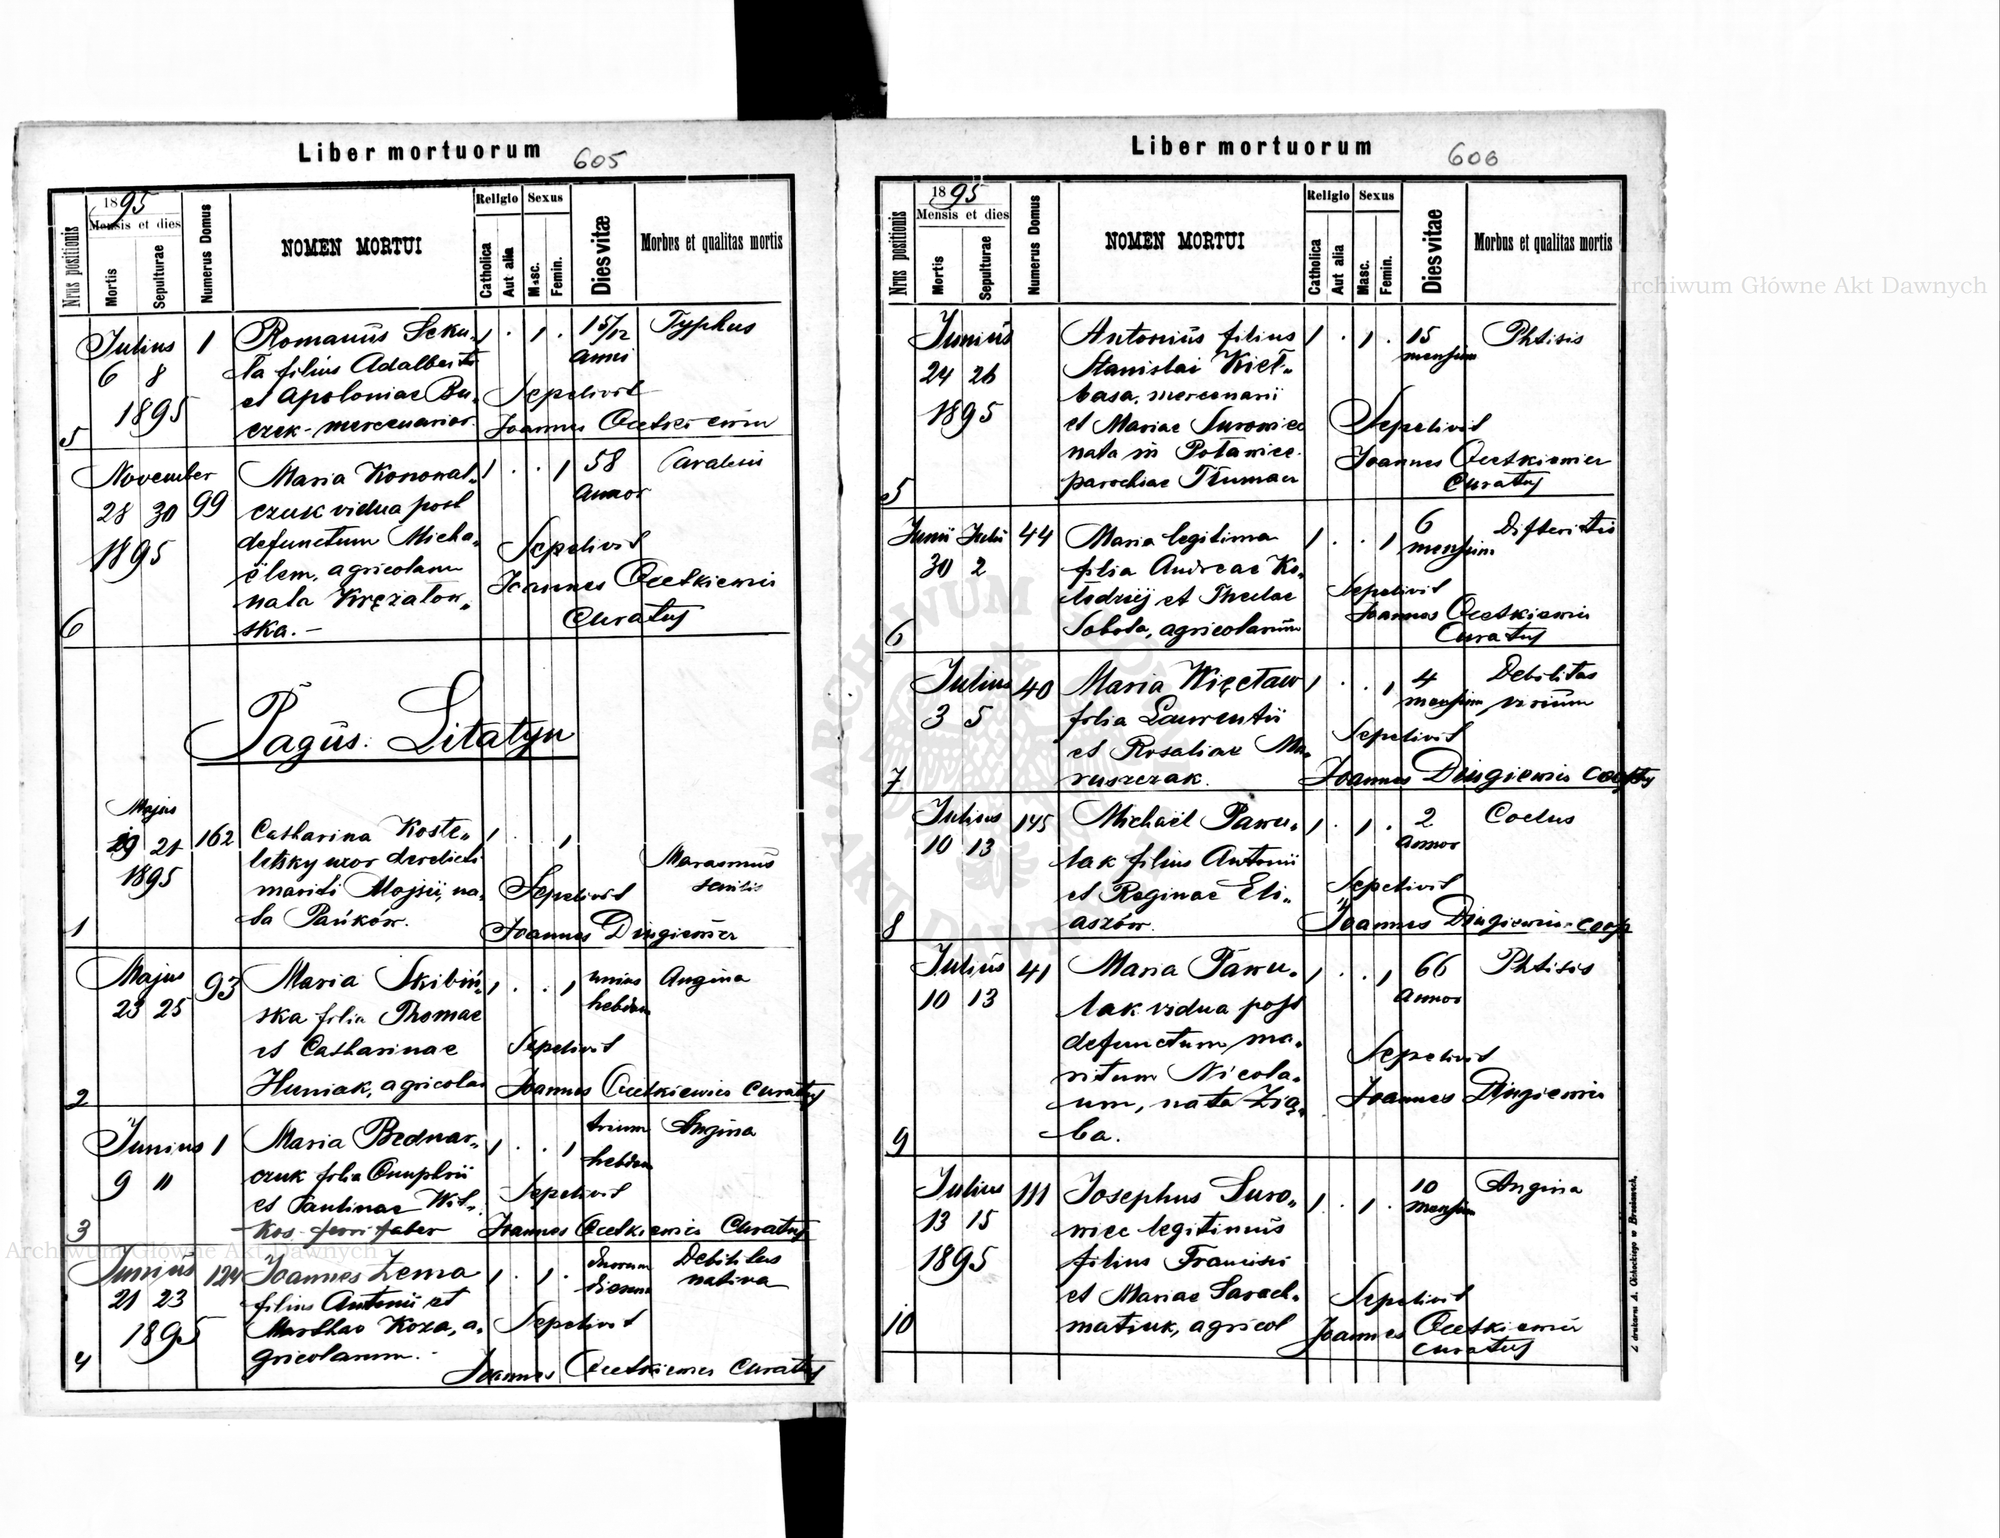 Liber mortuorum 605
Nrus positionis
1895
Mensis et dies
Mortis
Sepulturae
Numerus Domus
NOMEN MORTUI
Religio
Catholica
Aut alia
Sexus
Masc.
Femin.
Dies vitae
Morbus et qualitas mortis
Julius 1 Romanus Seku- 1 . 1 . 1 5/12 Typhus
6 8 ła filius Adalberti anni
1895 et Apoloniae Bu- Sepelivit
5 czek - mercenarior. Joannes
November Maria Konowal- 1 . . 1 58
28 30 99 czuk vidua post annor
1895 defunctum Micha- Sepelivit
ëlem, agricolam Joannes Ocetkiewicz
nata Krężałow- Curatus
6 ska. -
Pagus: Litatyn
Majus
19 21 162 Catharina Koste- 1 . 1
1895 letsky uxor derelicti Marasmus
mariti Mojsii, na- Sepelivit senilis
1 ta Pańków. Joannes Dingiewicz
Majus 93 Maria Skibiń- 1 . . 1 unius Angina
23 25 ska filia Thomae hebdom
et Catharinae Sepelivit
2 Huniak, agricolar Joannes Ocetkiewicz Curatus
Junius 1 Maria Bednar- 1 . . 1 trium Angina
9 11 czuk filia Onuphrii hebdom
et Paulinae Wit- Sepelivit
3 kos - ferri faber Joannes Ocetkiewicz Curatus
Junius 124 Joannes Zema 1 . 1 . duorum Debilitas
21 23 filius Antonii et dierum nativa
1895 Marthae Koza, a- Sepelivit
4 gricolarum. - Joannes Ocetkiewicz Curatus
Liber mortuorum 606
Nrus positionis
1895
Mensis et dies
Mortis
Sepulturae
Numerus Domus
NOMEN MORTUI
Religio
Catholica
Aut alia
Sexus
Masc.
Femin.
Dies vitae
Morbus et qualitas mortis
Junius Antonius filius 1 . 1 . 15 Phtisis
24 26 Stanislai Kieł- mensium
1895 basa, mercenarii
et Mariae Surowiec Sepelivit
nata in Potawiec. Joannes Ocetkiewicz
5 parochiae Tłumacz Curatus
Junii Julii 44 Maria legitima 1 . . 1 6 Difteritis
30 2 filia Andreae Ko- mensium
łodzij et Theclae Sepelivit
6 Sobota, agricolarum Joannes Ocetkiewicz
Curatus
Julius 40 Maria Więcław 1 . . 1 4 Debilitas
3 5 filia Laurentii mensium virium
et Rosaliae Ma- Sepelivit
7 ruszczak. Joannes Dingiewicz
Julius 145 Michaël Pawu- 1 . 1 . 2
10 13 lak filius Antonii annor
et Reginae Eli- Sepelivit
8 aszów. Joannes Dingiewicz coop
Julius 41 Maria Pawu- 1 . . 1 66 Phtisis
10 13 lak vidua post annor
defunctum ma- Sepelivit
ritum Nicola- Joannes Dingiewicz
um, nata Zię-
9 ba.
Julius 111 Josephus Suro- 1 . 1 . 10 Angina
13 15 wiec legitimus mensium
1895 filius Francisci
et Mariae Sarach- Sepelivit
10 matiuk, agricol Joannes Ocetkiewicz
curatus
Z drukarni A. Cichockiego w Brzeżanach.
Archiwum Główne Akt Dawnych
Archiwum Główne Akt Dawnych
ARCHIWUM GŁÓWNE AKT DAWNYCH